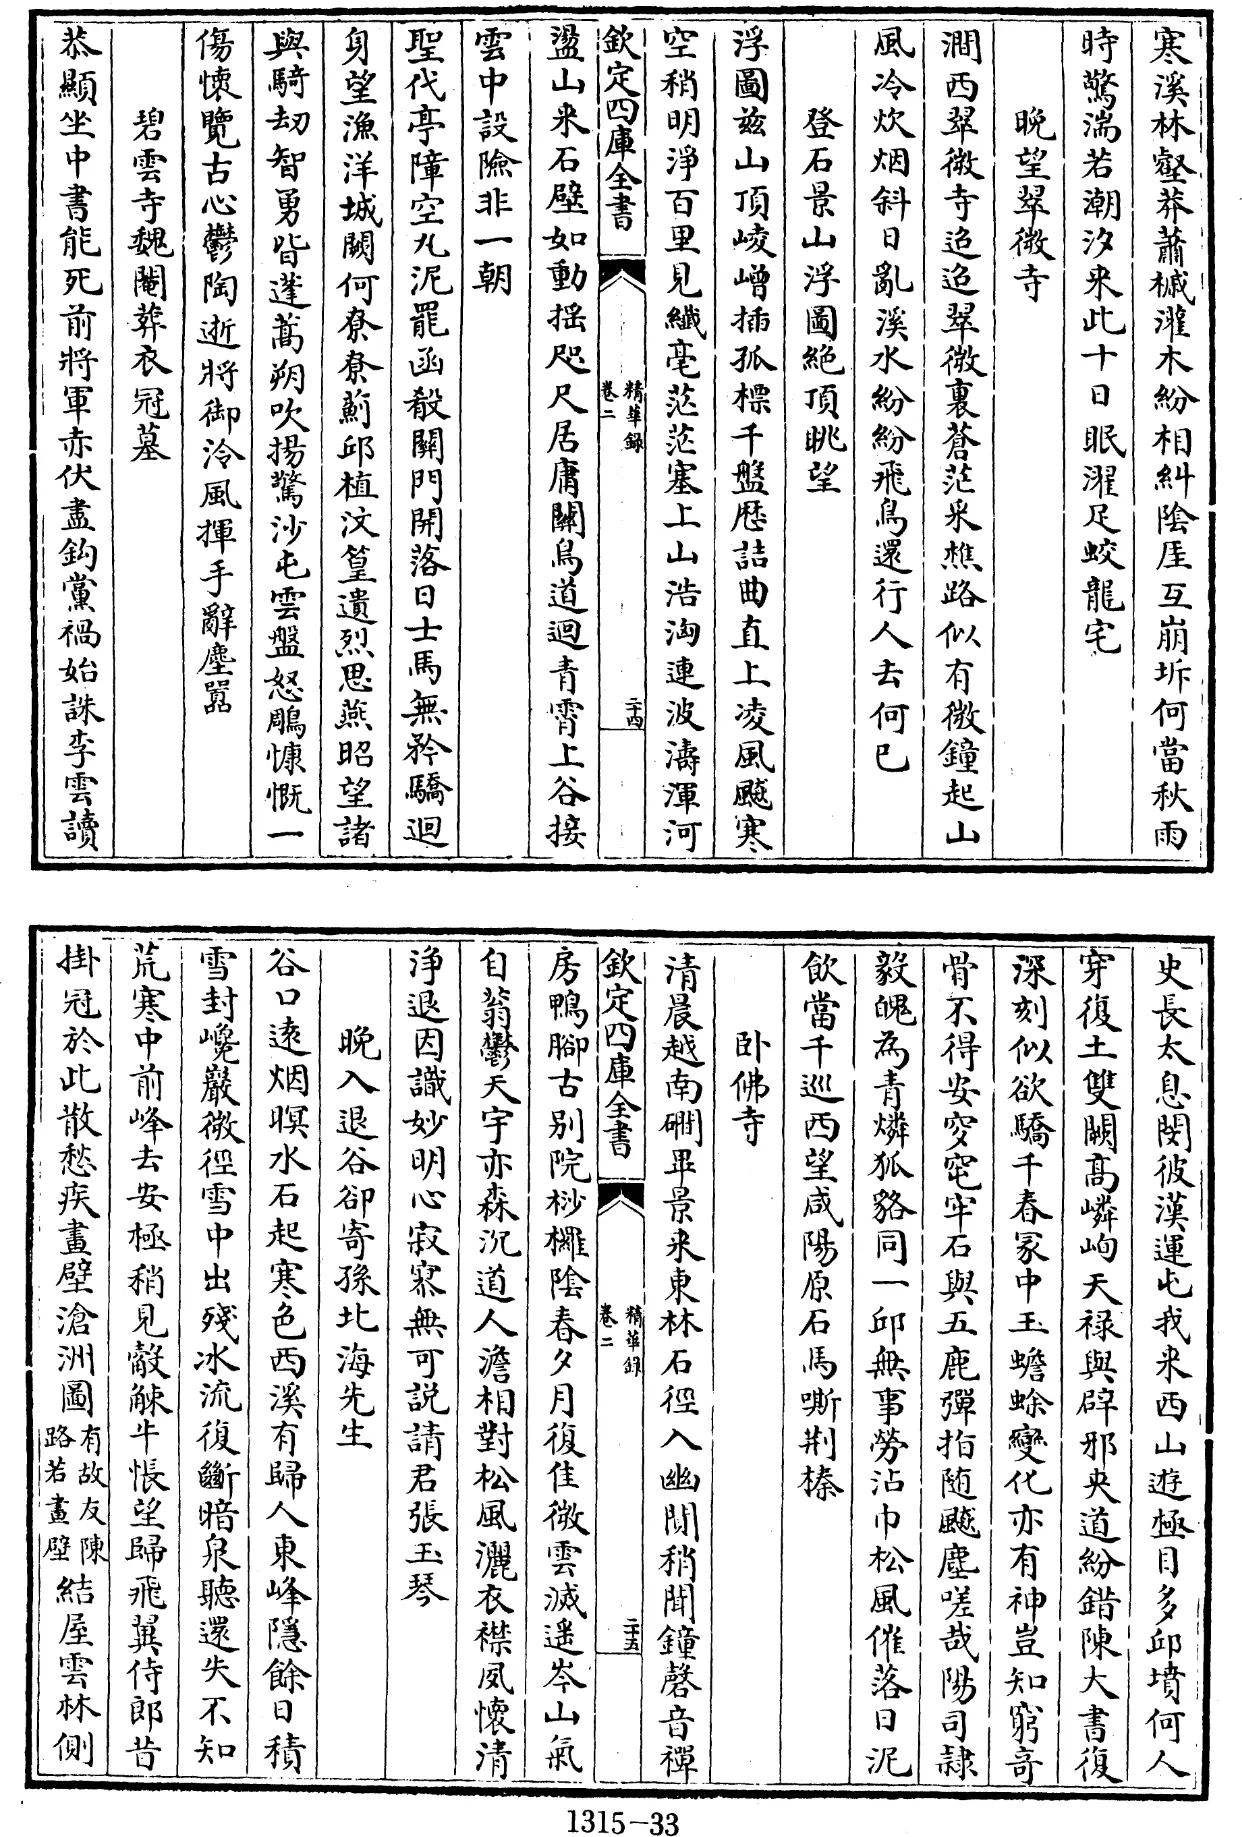 寒溪林壑莽蕭槭灌木紛相糾陰厓互崩坼何當秋雨
時驚湍若潮汐来此十日眠濯足蛟龍宅
晚望翠微寺
澗西翠微寺迢迢翠微裏蒼茫采樵路似有微鐘起山
風冷炊烟斜日亂溪水紛紛飛鳥還行人去何已
登石景山浮圖絶頂眺望
浮圖兹山頂崚嶒插孤標千盤歷詰曲直上凌風飈寒
空稍明淨百里見纎毫茫茫塞上山浩洶連波濤渾河
欽定四庫全書
精華録
卷二
二十四
盪山来石壁如動揺咫尺居庸關鳥道迴青霄上谷接
雲中設險非一朝
聖代亭障空九泥罷函殽關門開落日士馬無矜驕迴
身望漁洋城闕何尞尞薊邱植汶篁遺烈思燕昭望諸
與騎刼智勇皆蓬蒿朔吹揚驚沙屯雲盤怒鵰慷慨一
傷懷覽古心鬱陶逝將御泠風揮手辭塵囂
碧雲寺魏閹葬衣冠墓
恭顯坐中書能死前將軍赤伏盡鈎黨禍始誅李雲讀
史長太息閔彼漢運屯我来西山遊極目多邱墳何人
穿復土雙闕高嶙峋天禄與辟邪夾道紛錯陳大書復
深刻似欲驕千春冢中玉蟾蜍變化亦有神豈知窮奇
骨不得安穸窀牢石與五鹿彈指随飈塵嗟哉陽司隷
毅魄為青燐狐貉同一邱無事勞沾巾松風催落日泥
飲當千巡西望咸陽原石馬嘶荆榛
卧佛寺
清晨越南磵畢景来東林石徑入幽閴稍聞鐘磬音禪
欽定四庫全書
精華録
卷二
二十五
房鴨腳古别院桫欏陰春夕月復佳微雲滅遥岑山氣
自蓊鬱天宇亦森沉道人澹相對松風灑衣襟夙懷清
淨退因識妙明心寂寞無可説請君張玉琴
晚入退谷卻寄孫北海先生
谷口逺烟暝水石起寒色西溪有歸人東峰隱餘日積
雪封巉巖微徑雪中出殘冰流復斷暗泉聽還失不知
荒寒中前峰去安極稍見觳觫牛悵望歸飛翼侍郎昔
掛冠於此散愁疾畫壁滄洲圖有故友陳路若畫壁結屋雲林側
1315-33